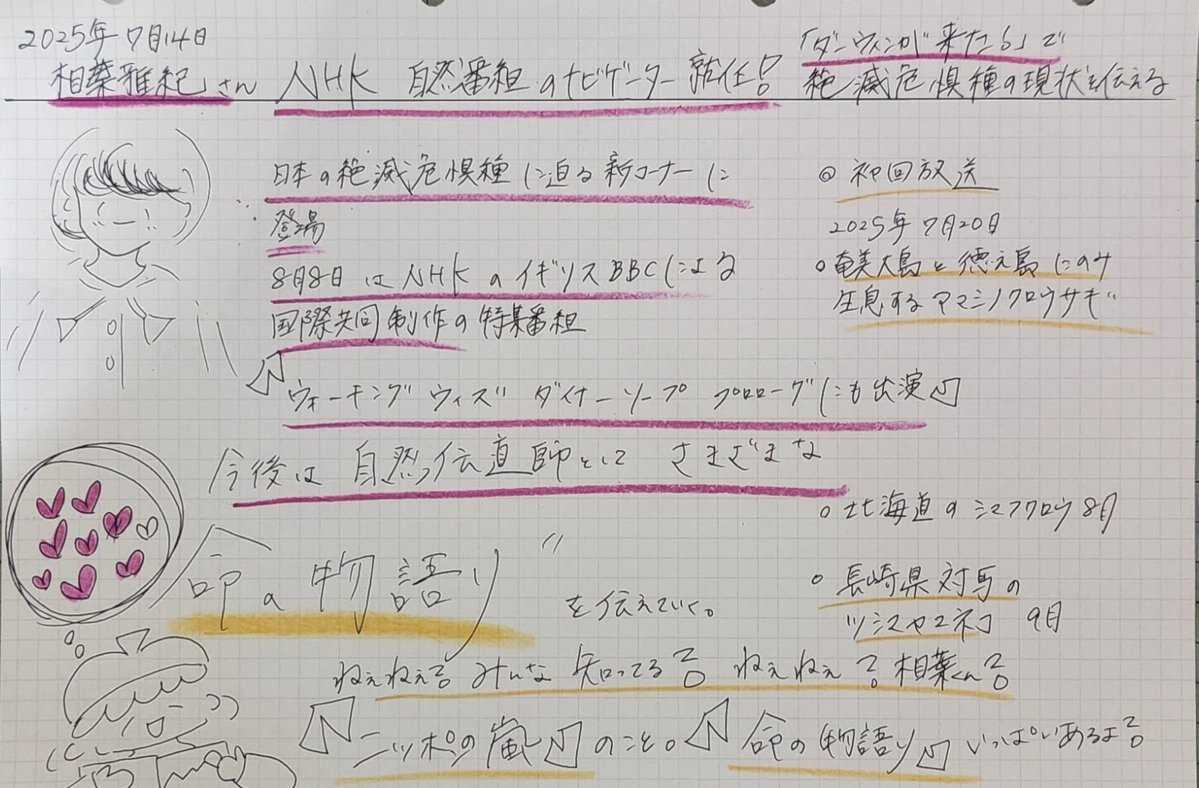 2025年7月14日
相葉雅紀さん NHK 自然番組のナビゲーター就任!
「ダーウィンが来た!」で
絶滅危惧種の現状を伝える
日本の絶滅危惧種に迫る新コーナーに
登場
8月8日はNHKのイギリスBBCによる
国際共同制作の特集番組
「ウォーキングウィズダイナーソープ プロローグにも出演」
今後は自然伝道師として さまざまな
命の物語り"
を伝えていく。
◎ 初回放送
2025年7月20日
○ 奄美大島と徳之島にのみ
生息するアマミノクロウサギ
○ 北海道のシマフクロウ 8月
○ 長崎県対馬の
ツシマヤマネコ 9月
ねぇねぇ? みんな知ってる? ねぇねぇ? 相葉くん?
「ニッポンの嵐」のこと。「命の物語り」いっぱいあるよ?